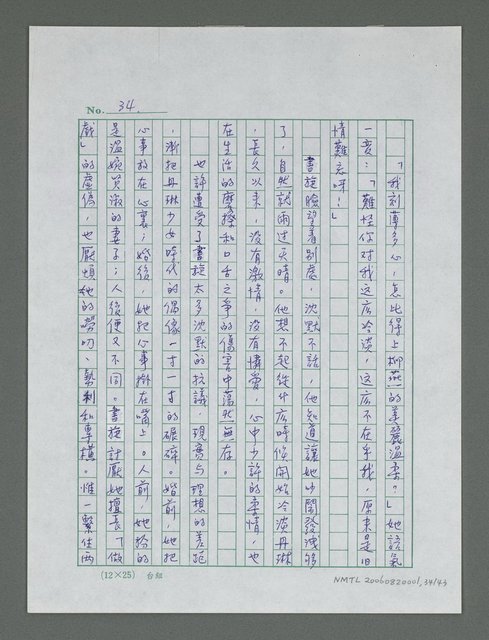 No. 34.
「我刻薄多心，怎比得上柳燕的美麗溫柔？」她語氣
一變：「難怪你對我這麼冷淡，這麼不在乎我，原來是旧
情難忘呀！」
書旋臉望着別處，沈默不語，他知道讓她吵鬧發洩夠
了，自然就雨过天晴。他想不起從什麼時候開始冷淡丹琳
，長久以來，沒有激情，沒有憐愛，心中少許的柔情，也
在生活的摩擦和口舌之爭的傷害中蕩然無存。
也許遭受了書旋太多沈默的抗議，現實与理想的差距
，漸把丹琳少女時代的偶像一寸一寸的碾碎。婚前，她把
心事放在心裏；婚後，她把心事掛在嘴上。人前，她扮的
是溫婉賢淑的妻子；人後便又不同。書旋討厭她擅長「做
戲」的虛偽，也厭煩她的勞叨、勢利和專橫。惟一繫住兩
(12×25) 台組
NMTL 20060820001,34/43